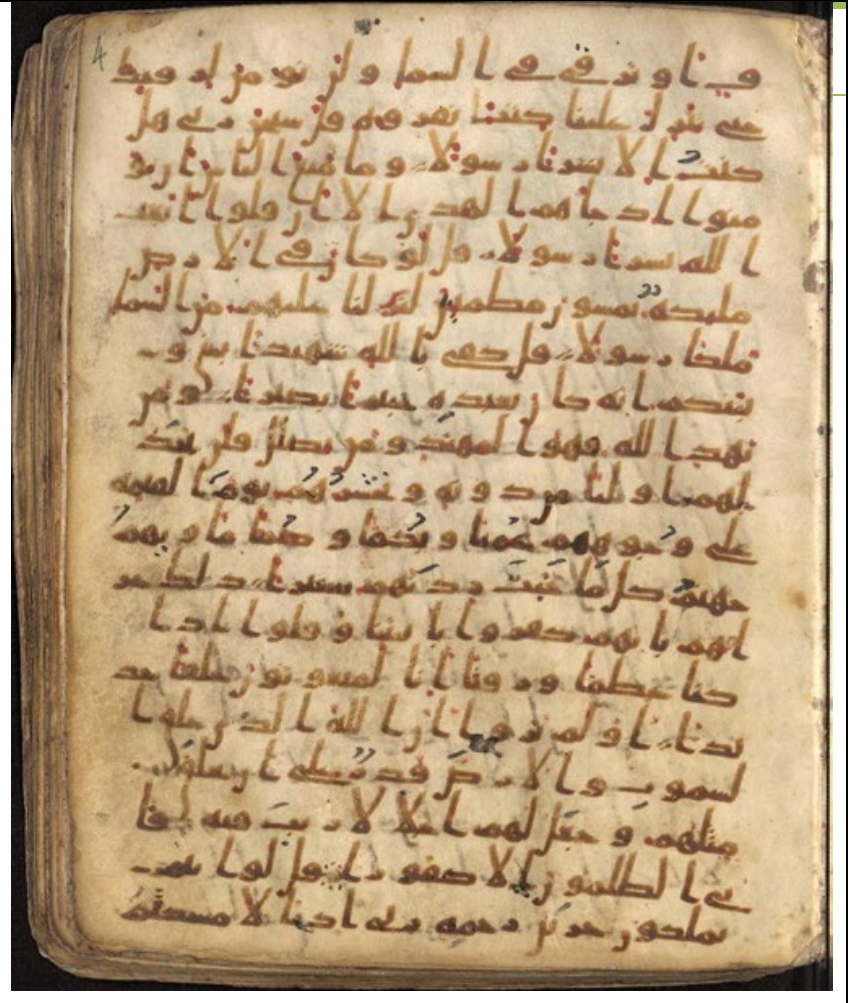 4
ف او ترقى في السما ولن نومن لرقيك
حتى تنزل علينا كتبا نقروه قل سبحن ربي هل
كنت الا بشرا رسولا وما منع الناس ان يو
منوا اذ جاهم الهدى الا ان قلوا ابعث
الله بشرا رسولا قل لو كان في الارض
مليكة يمشون مطمينين لنزلنا عليهم من السما
ملكا رسولا قل كفى بالله شهيدا بيني و
بينكم انه كان بعبده خبيرا بصيرا ومن
يهد الله فهو المهتد ومن يضلل فلن تجد
لهم اوليا من دونه ونحشرهم يوم القيمة
على وجوههم عميا وبكما وصما ماويهم
جهنم كلما خبت زدنهم سعيرا ذلك جز
اهم بانهم كفروا باييتنا وقلوا اذا
كنا عظما ورفتا انا لمبعوثون خلقا جد
يدا اولم يروا ان الله الذي خلق ا
لسموت والارض قدر على ان يخلق
مثلهم وجعل لهم اجلا لا ريب فيه فا
بى الظلمون الا كفورا قل لو انتم
تملكون خزين رحمة ربي اذا لامسكتم